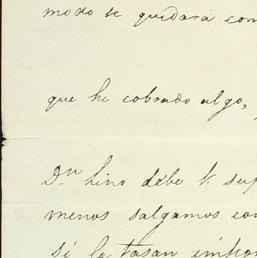 modo se quedará com
que he cobrado algo,
Dn Lino debe V. sup
menos salgamos con
si la tasan impor